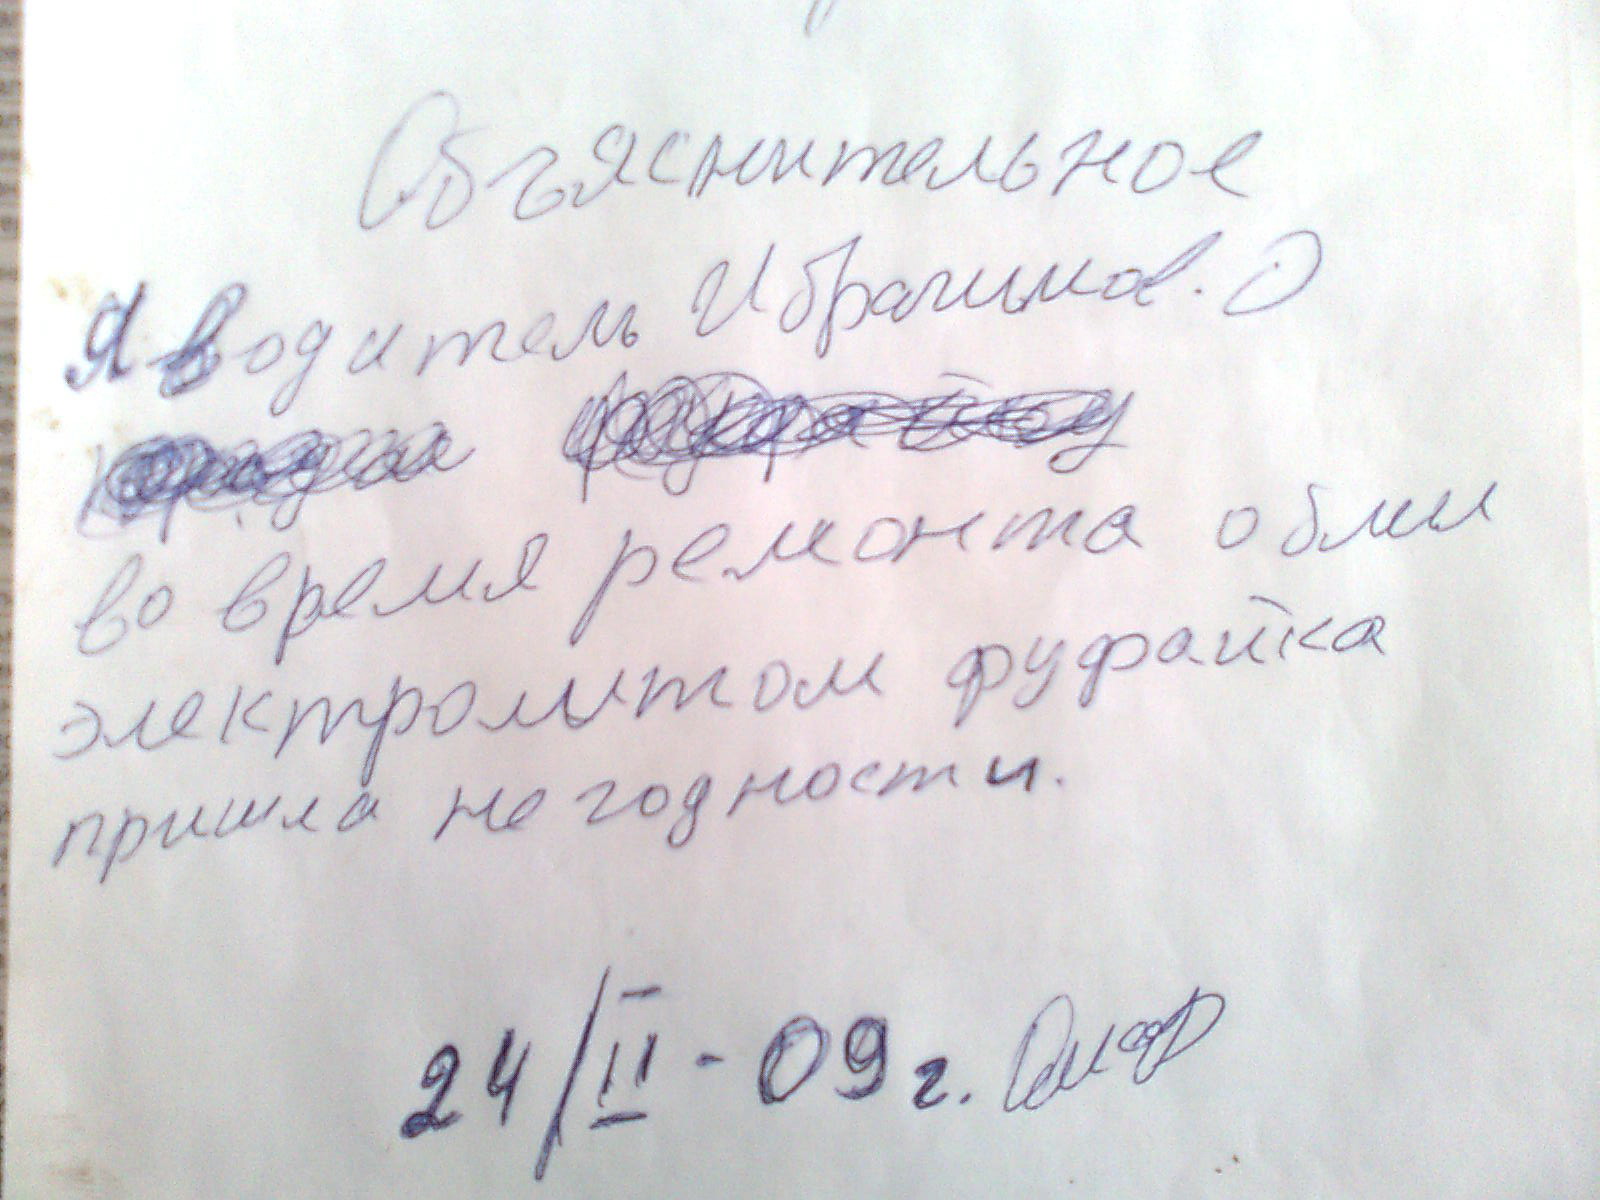 Объяснительное
Я водитель Ибрагимов. О
во время ремонта облил
электролитом фуфайка
пришла не годности.
24/II-09г.